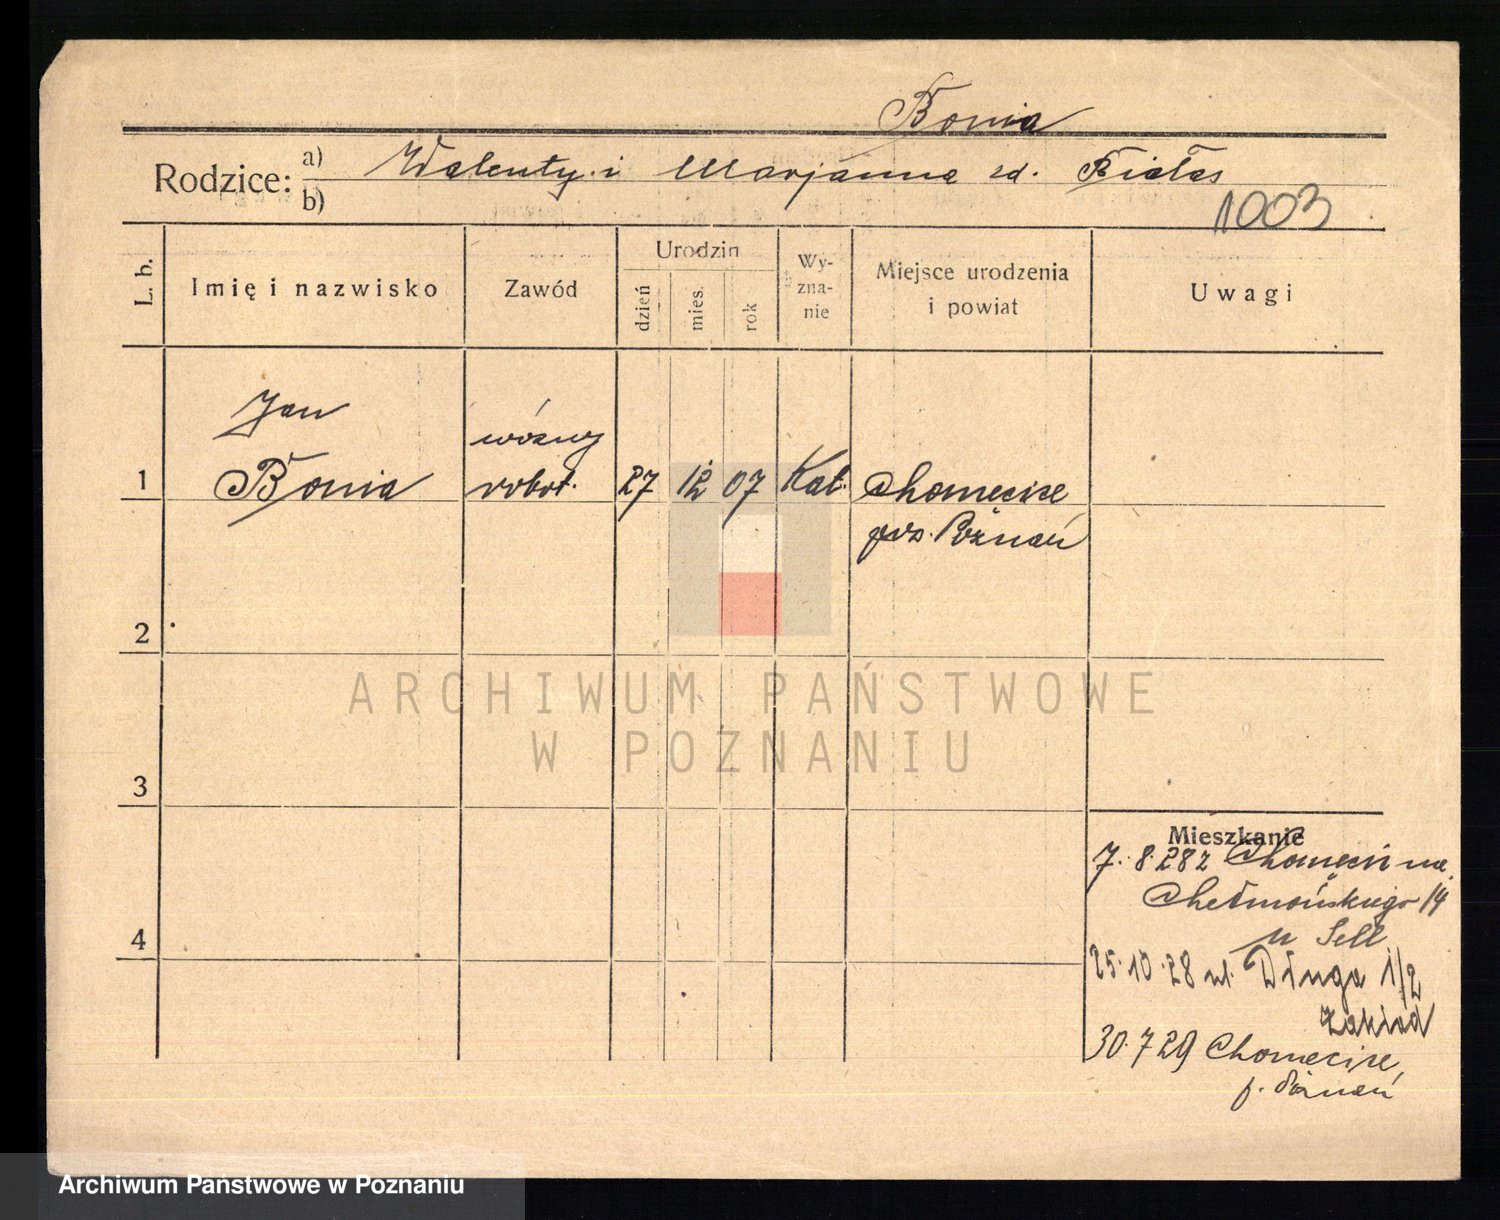 Bonia
Rodzice: a) Walenty i Marjanna zd. Białas
b)
1003
L. b.
Imię i nazwisko
Zawód
Urodzin
dzień
mies.
rok
Wy-
zna-
nie
Miejsce urodzenia
i powiat
Uwagi
Jan
woźny
1 Bonia robot. 27 12 07 Kat. Chomęcice
pow. Poznań
2
ARCHIWUM PAŃSTWOWE
W POZNANIU
3
Mieszkanie
7.8.28 z Chomęcic na
Chełmońskiego 14
u Sell
4
25.10.28 ul. Długa 1/2
Zakład
30.7 29 Chomęcice,
p. Poznań
Archiwum Państwowe w Poznaniu